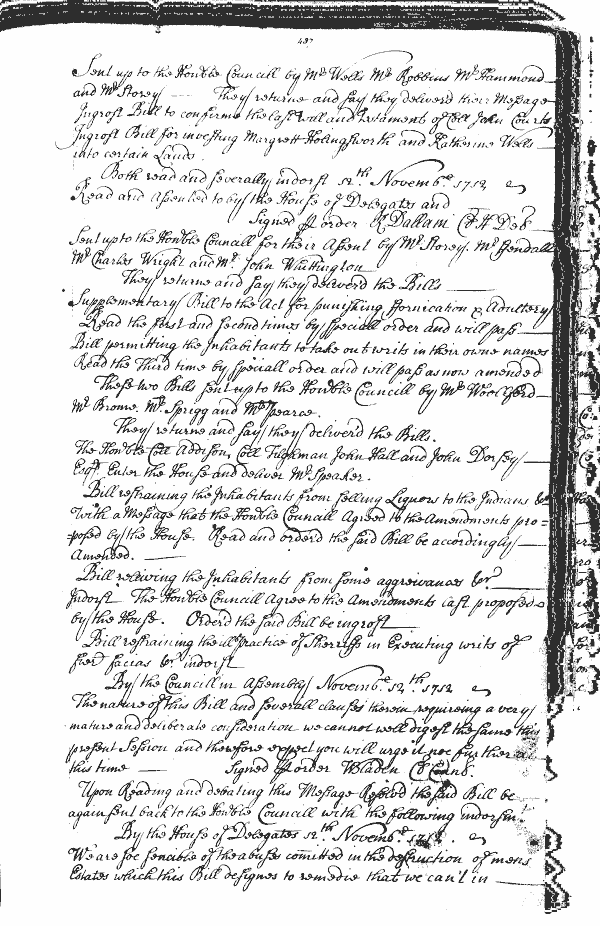 437
Sent up to the Honble Councill by Mr Wells Mr Robbins Mr Hammond
and Mr Storey They returne and say they deliverd their Message
Ingrost Bill to confirme the last will and testament of Coll John Courts
Ingrost Bill for investing Margrett Holingsworth and Katherine Wells
into certain Lands.
Both read and severally indorst 12th Novembr 1712
Read and Assented to by the House of Delegates and
Signed p order R Dallam Cl H Del
Sent up to the Honble Councill for their Assent by Mr Storey, Mr Kendall
Mr Charles Wright and Mr John Whittington
They returne and say they deliverd the Bills
Supplementary Bill to the Act for punishing fornication & adultery
Read the first and second times by speciall order and will pass
Bill permitting the Inhabitants to take out writs in their owne names
Read the Third time by speciall order and will pass as now amended
These two Bills sent up to the Honble Councill by Mr Woolford
Mr Brome, Mr Sprigg and Mr Pearce.
They returne and say they deliver'd the Bills.
The Honble Coll Addison, Coll Tilghman John Hall and John Dorsey
Esqrs Enter the House and deliver Mr Speaker.
Bill restraining the Inhabitants from selling Liquors to the Indians &c
with a Message that the Honble Councill Agreed to the Amendments pro=
=posed by the House. Read and orderd the said Bill be accordingly
Amended.
Bill releiving the Inhabitants from some aggreivances &c
Indorst The Honble Councill Agree to the Amendments last proposed
by the House. Orderd the said Bill be ingrost
Bill restraining the ill practice of Sherriffs in Executing writs of
fieri facias &c indorst
By the Councill in Assembly Novembr 12th 1712
The nature of this Bill and severall clauses therein requireing a very
mature and deliberate consideration we cannot well digest the same this
present Session and therefore expect you will urge it not further at
this time Signed p order WBladen Cl Conb.
Upon Reading and debating this Message Resolvd the said Bill be
again sent back to the Honble Councill with the following indorsmt
By the House of Delegates 12th Novembr 1712.
We are soe sensible of the abuses comitted in the destruction of mens
Estates which this Bill designes to remedie that we can't in